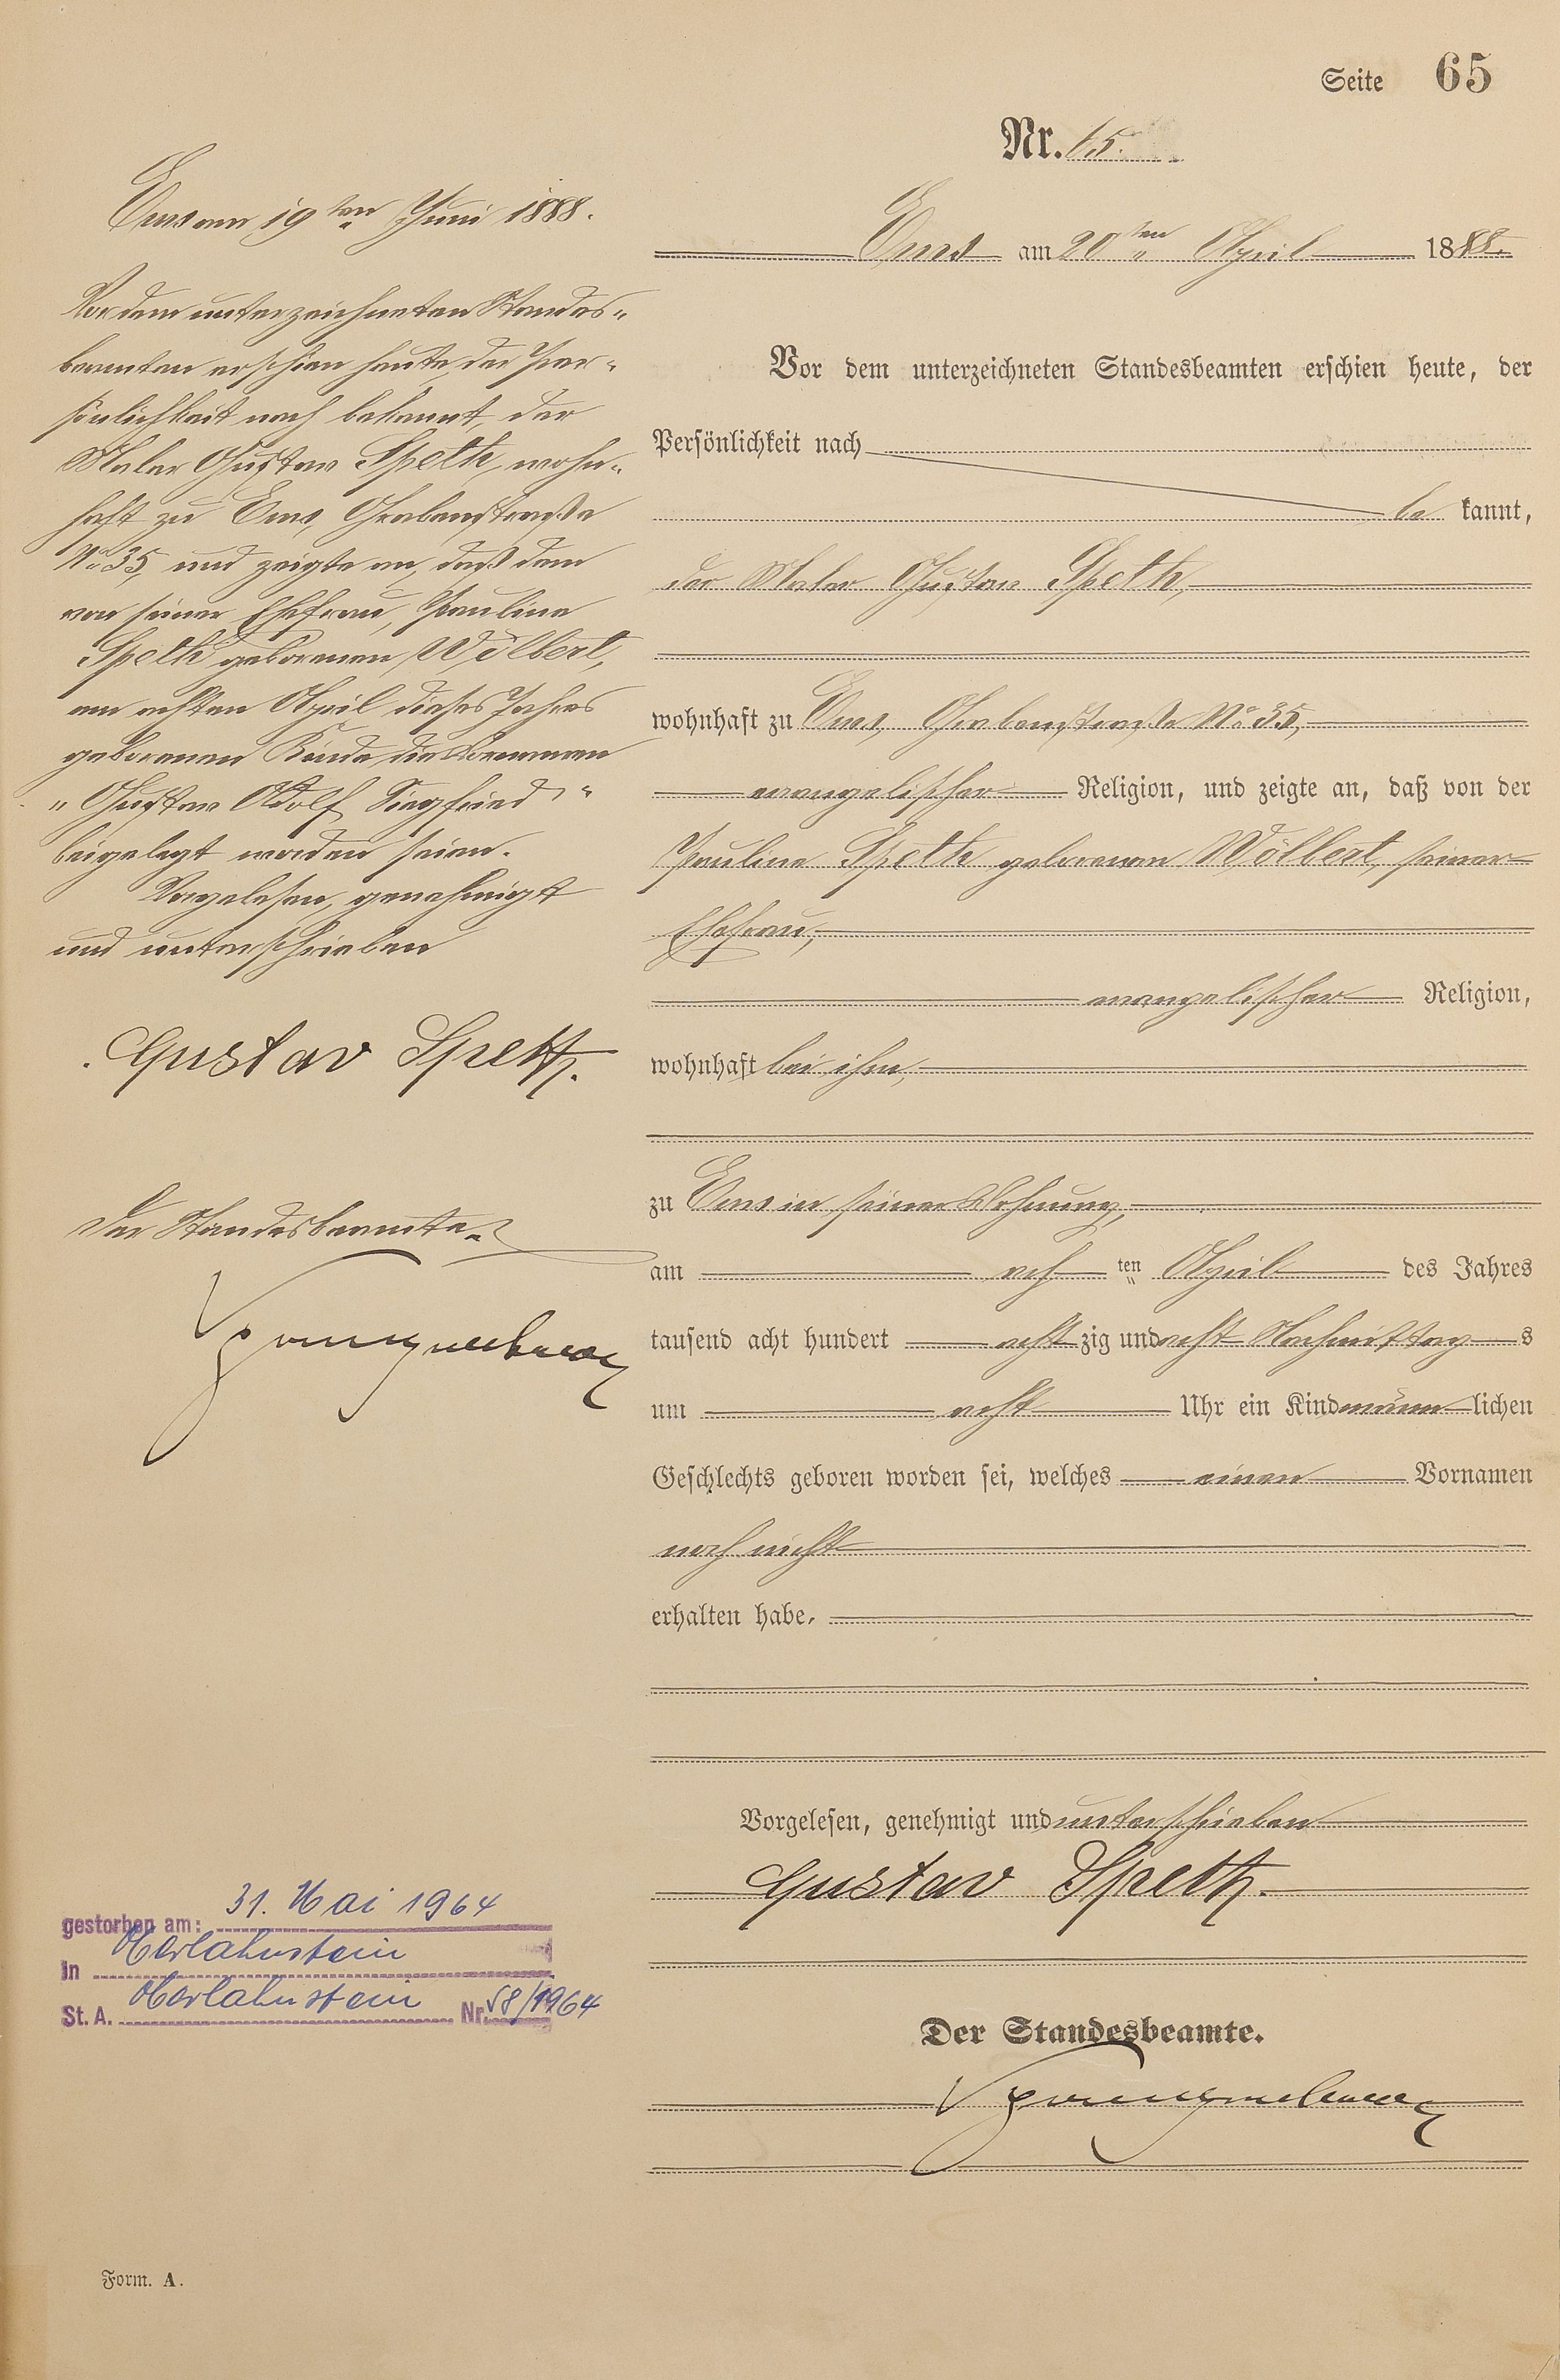 Seite 65
Nr. 65.
Ems am 20ten April 1888.
Vor dem unterzeichneten Standesbeamten erschien heute, der
Persönlichkeit nach
be kannt,
der Maler Gustav Speth,
wohnhaft zu Ems, Grabenstraße No 35,
evangelischer Religion, und zeigte an, daß von der
Pauline Speth geborenen Wölbert, seiner
Ehefrau,
evangelischer Religion,
wohnhaft bei ihm,
zu Ems in seiner Wohnung,
am ach ten April des Jahres
tausend acht hundert acht zig und acht Nachmittag s
um acht Uhr ein Kind männ lichen
Geschlechts geboren worden sei, welches einen Vornamen
noch nicht
erhalten habe.
Vorgelesen, genehmigt und unterschrieben
Gustav Speth.
Der Standesbeamte.
Ems am 19ten Juni 1888.
Vor dem unterzeichneten Standes-
beamten erschien heute, der Per-
sönlichkeit nach bekannt, der
Maler Gustav Speth, wohn-
haft zu Ems, Grabenstraße
No 35, und zeigte an, daß dem
von seiner Ehefrau, Pauline
Speth geborenen Wölbert,
am achten April dieses Jahres
geborenen Kinde die Vornamen
„Gustav Adolf Siegfried"
beigelegt worden seien.
Vorgelesen, genehmigt
und unterschrieben
Gustav Speth.
Der Standesbeamte.
gestorben am: 31. Mai 1964
in Oberlahnstein
St. A. Oberlahnstein Nr. 58/1964
Form. A.